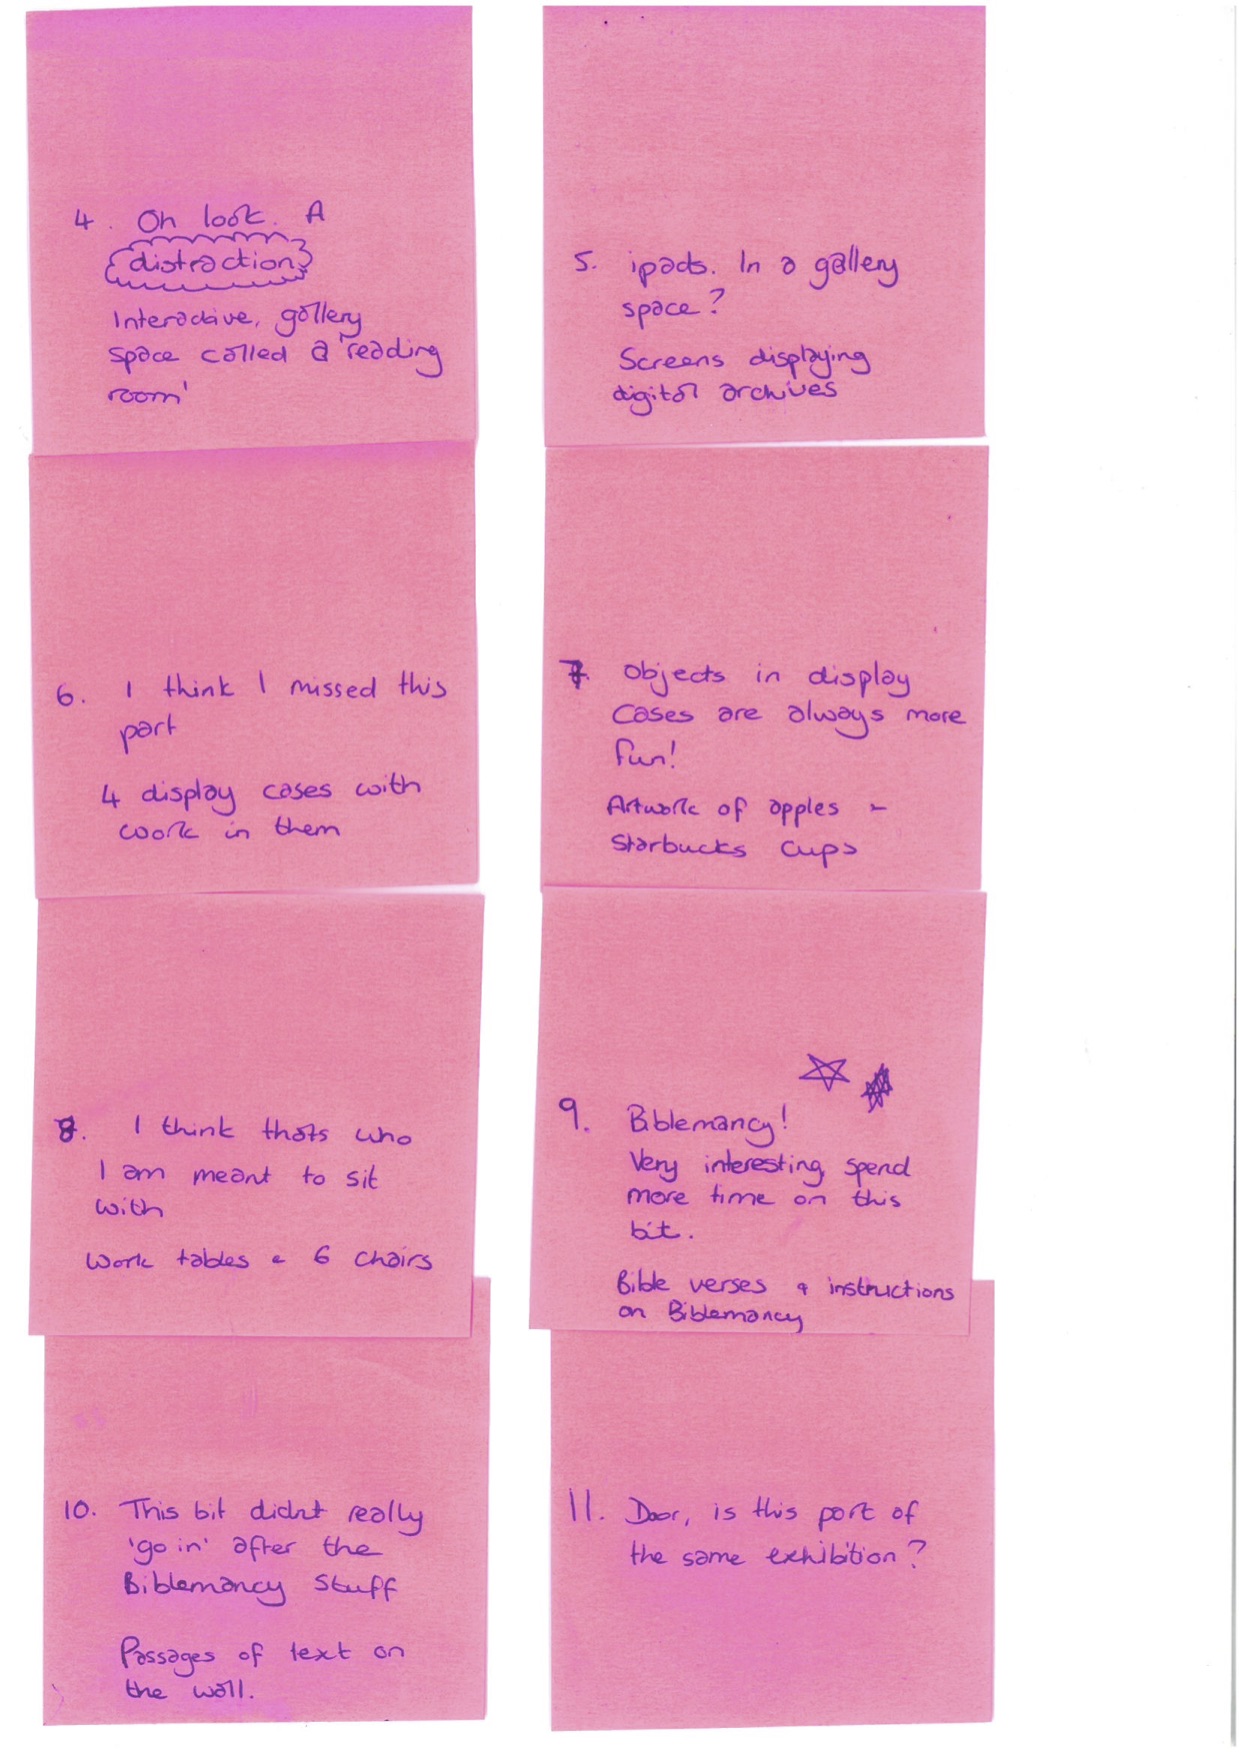 4. Oh look. A
distraction
Interactive, gallery
space called a 'reading
room'
5. ipads. In a gallery
space?
Screens displaying
digital archives
6. I think I missed this
part
4 display cases with
work in them
7. Objects in display
cases are always more
fun!
Artwork of apples -
Starbucks cups
8. I think thats who
I am meant to sit
with
Work tables & 6 chairs
9. Biblemancy!
Very interesting spend
more time on this
bit.
Bible verses & instructions
on Biblemancy
10. This bit didnt really
'go in' after the
Biblemancy stuff
Passages of text on
the wall.
11. Door, is this part of
the same exhibition?